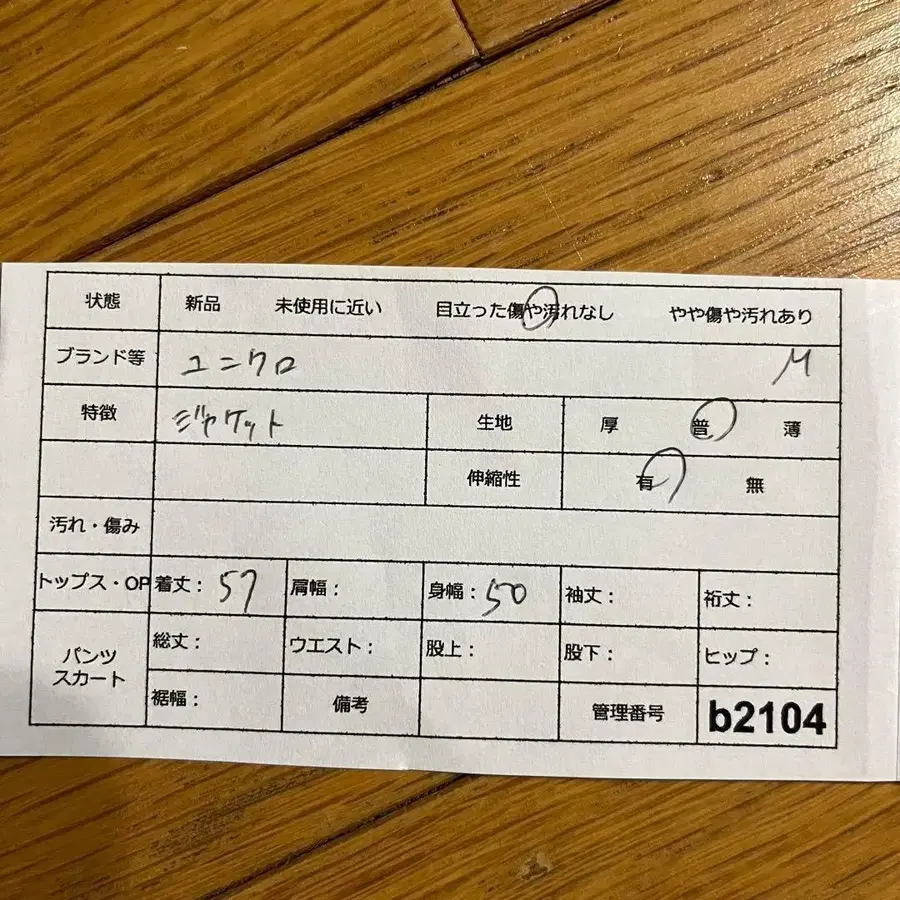 状態 新品 未使用に近い 目立った傷や汚れなし やや傷や汚れあり
ブランド等 ユニクロ M
特徴 ジャケット 生地 厚 普 薄
伸縮性 有 無
汚れ・傷み
トップス・OP 着丈: 57 肩幅: 身幅: 50 袖丈: 裄丈:
パンツ スカート 総丈: ウエスト: 股上: 股下: ヒップ:
裾幅: 備考 管理番号 b2104